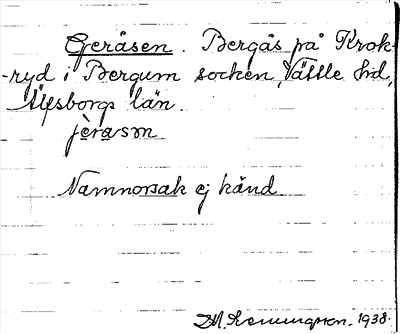 Geråsen. Bergås på Krok-
-ryd i Bergum socken, Vättle hd,
Älfsborgs län.
jèrasm
Namnorsak ej känd.
1938.